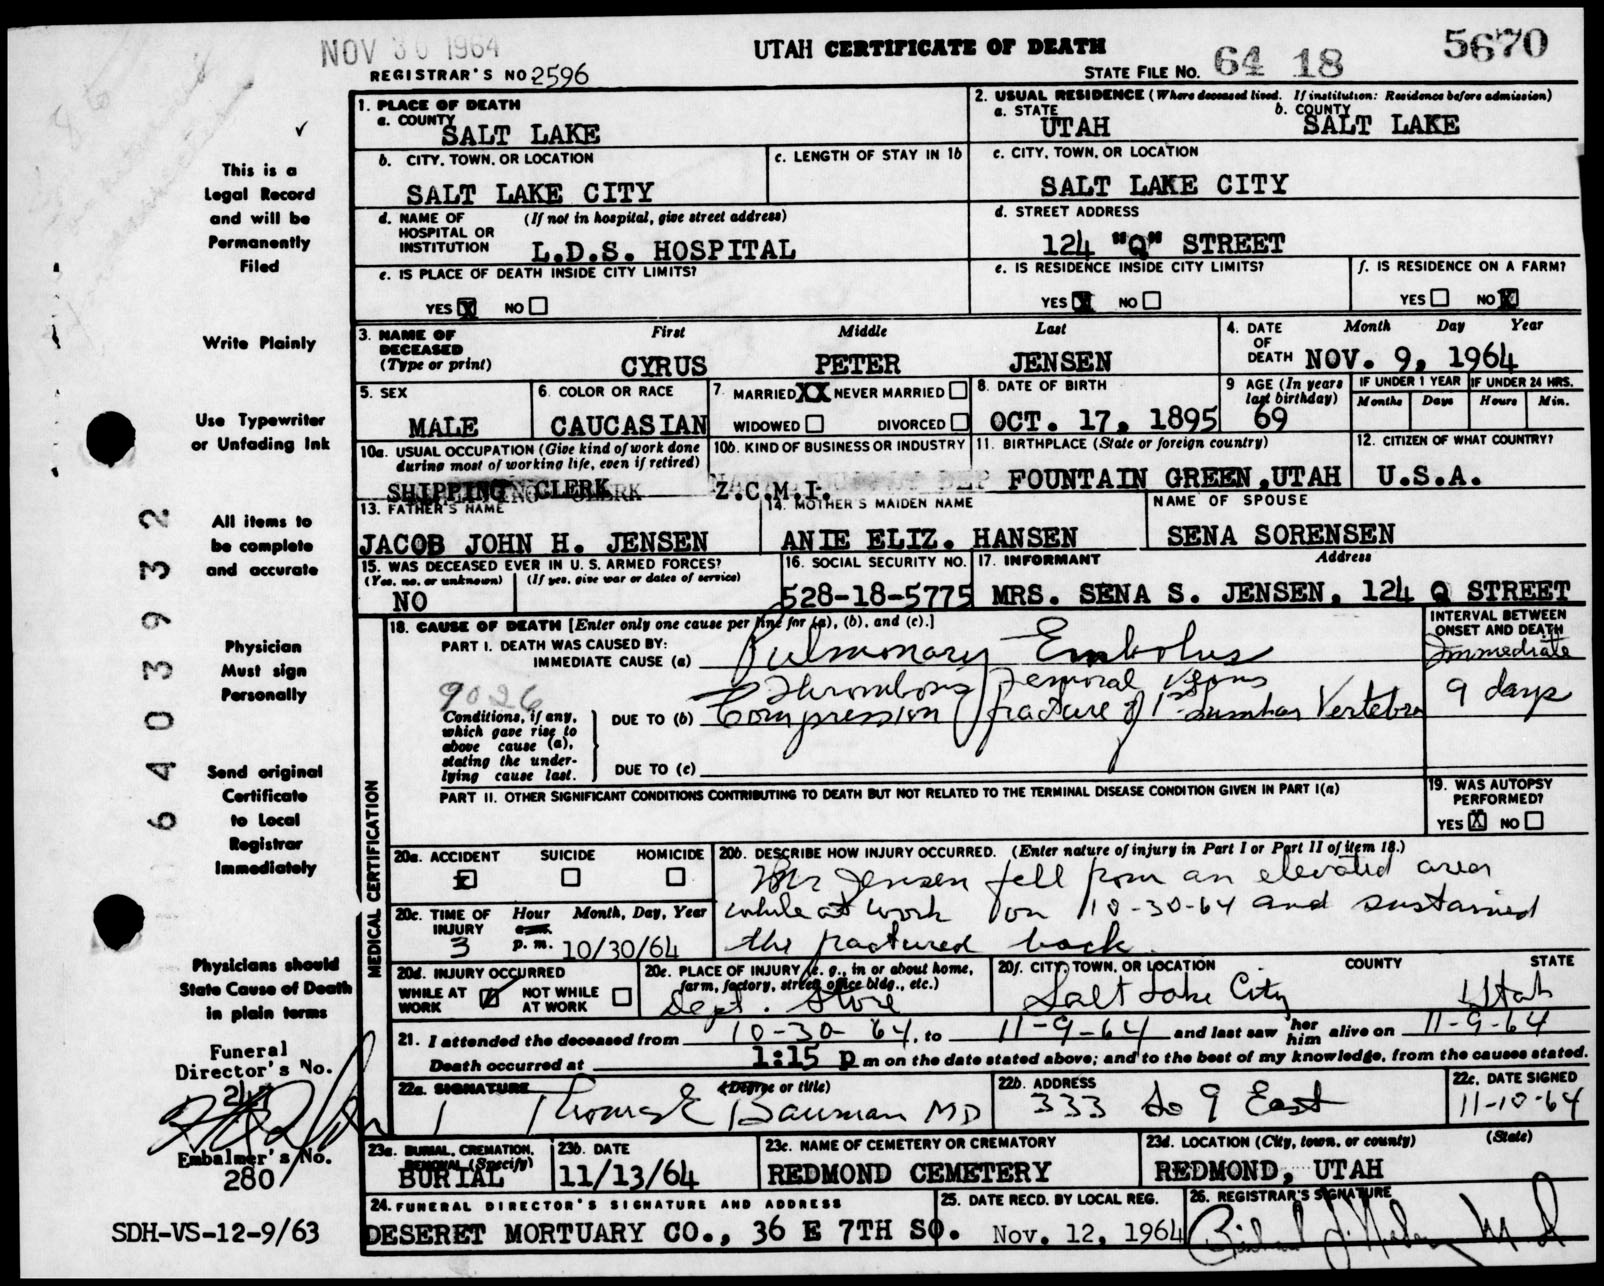 NOV 30 1964
UTAH CERTIFICATE OF DEATH
5670
REGISTRAR'S NO 2596
STATE FILE NO. 64 18
1. PLACE OF DEATH
a. COUNTY
SALT LAKE
2. USUAL RESIDENCE (Where deceased lived. If institution: Residence before admission)
a. STATE
UTAH
b. COUNTY
SALT LAKE
b. CITY, TOWN, OR LOCATION
SALT LAKE CITY
c. LENGTH OF STAY IN 1b
c. CITY, TOWN, OR LOCATION
SALT LAKE CITY
d. NAME OF HOSPITAL OR INSTITUTION
(If not in hospital, give street address)
L.D.S. HOSPITAL
d. STREET ADDRESS
124 "Q" STREET
e. IS PLACE OF DEATH INSIDE CITY LIMITS?
YES X NO
e. IS RESIDENCE INSIDE CITY LIMITS?
YES X NO
f. IS RESIDENCE ON A FARM?
YES NO X
3. NAME OF DECEASED (Type or print)
First Middle Last
CYRUS PETER JENSEN
4. DATE OF DEATH
Month Day Year
NOV. 9, 1964
5. SEX
MALE
6. COLOR OR RACE
CAUCASIAN
7. MARRIED XX NEVER MARRIED
WIDOWED DIVORCED
8. DATE OF BIRTH
OCT. 17, 1895
9 AGE (In years last birthday)
69
IF UNDER 1 YEAR
Months Days
IF UNDER 24 HRS.
Hours Min.
10a. USUAL OCCUPATION (Give kind of work done during most of working life, even if retired)
SHIPPING CLERK
10b. KIND OF BUSINESS OR INDUSTRY
Z.C.M.I.
11. BIRTHPLACE (State or foreign country)
FOUNTAIN GREEN, UTAH
12. CITIZEN OF WHAT COUNTRY?
U.S.A.
13. FATHER'S NAME
JACOB JOHN H. JENSEN
14. MOTHER'S MAIDEN NAME
ANIE ELIZ. HANSEN
NAME OF SPOUSE
SENA SORENSEN
15. WAS DECEASED EVER IN U. S. ARMED FORCES?
(Yes, no, or unknown) (If yes, give war or dates of service)
NO
16. SOCIAL SECURITY NO.
528-18-5775
17. INFORMANT Address
MRS. SENA S. JENSEN, 124 Q STREET
18. CAUSE OF DEATH [Enter only one cause per line for (a), (b), and (c).]
INTERVAL BETWEEN ONSET AND DEATH
PART I. DEATH WAS CAUSED BY:
IMMEDIATE CAUSE (a) Pulmonary Embolus
Immediate
9026
Thrombosis femoral veins
Conditions, if any, which gave rise to above cause (a), stating the underlying cause last.
DUE TO (b) Compression fracture of 1st Lumbar Vertebra
9 days
DUE TO (c)
PART II. OTHER SIGNIFICANT CONDITIONS CONTRIBUTING TO DEATH BUT NOT RELATED TO THE TERMINAL DISEASE CONDITION GIVEN IN PART I(a)
19. WAS AUTOPSY PERFORMED?
YES X NO
MEDICAL CERTIFICATION
20a. ACCIDENT SUICIDE HOMICIDE
X
20b. DESCRIBE HOW INJURY OCCURRED. (Enter nature of injury in Part I or Part II of item 18.)
Mr Jensen fell from an elevated area
while at work on 10-30-64 and sustained
the fractured back.
20c. TIME OF INJURY
Hour Month, Day, Year
3 p. m. 10/30/64
20d. INJURY OCCURRED
WHILE AT WORK NOT WHILE AT WORK
20e. PLACE OF INJURY (e. g., in or about home, farm, factory, street, office bldg., etc.)
Dept. Store
20f. CITY, TOWN, OR LOCATION COUNTY STATE
Salt Lake City Utah
21. I attended the deceased from 10-30-64, to 11-9-64 and last saw her him alive on 11-9-64
Death occurred at 1:15 P m on the date stated above; and to the best of my knowledge, from the causes stated.
22a. SIGNATURE (Degree or title)
Thomas E Bauman MD
22b. ADDRESS
333 So 9 East
22c. DATE SIGNED
11-10-64
23a. BURIAL, CREMATION, REMOVAL (Specify)
BURIAL
23b. DATE
11/13/64
23c. NAME OF CEMETERY OR CREMATORY
REDMOND CEMETERY
23d. LOCATION (City, town, or county) (State)
REDMOND, UTAH
24. FUNERAL DIRECTOR'S SIGNATURE AND ADDRESS
DESERET MORTUARY CO., 36 E 7TH SO.
25. DATE RECD. BY LOCAL REG.
Nov. 12, 1964
26. REGISTRAR'S SIGNATURE
This is a
Legal Record
and will be
Permanently
Filed
Write Plainly
Use Typewriter
or Unfading Ink
All items to
be complete
and accurate
Physician
Must sign
Personally
Send original
Certificate
to Local
Registrar
Immediately
Physicians should
State Cause of Death
in plain terms
Funeral
Director's No.
Embalmer's No.
280
SDH-VS-12-9/63
6403932